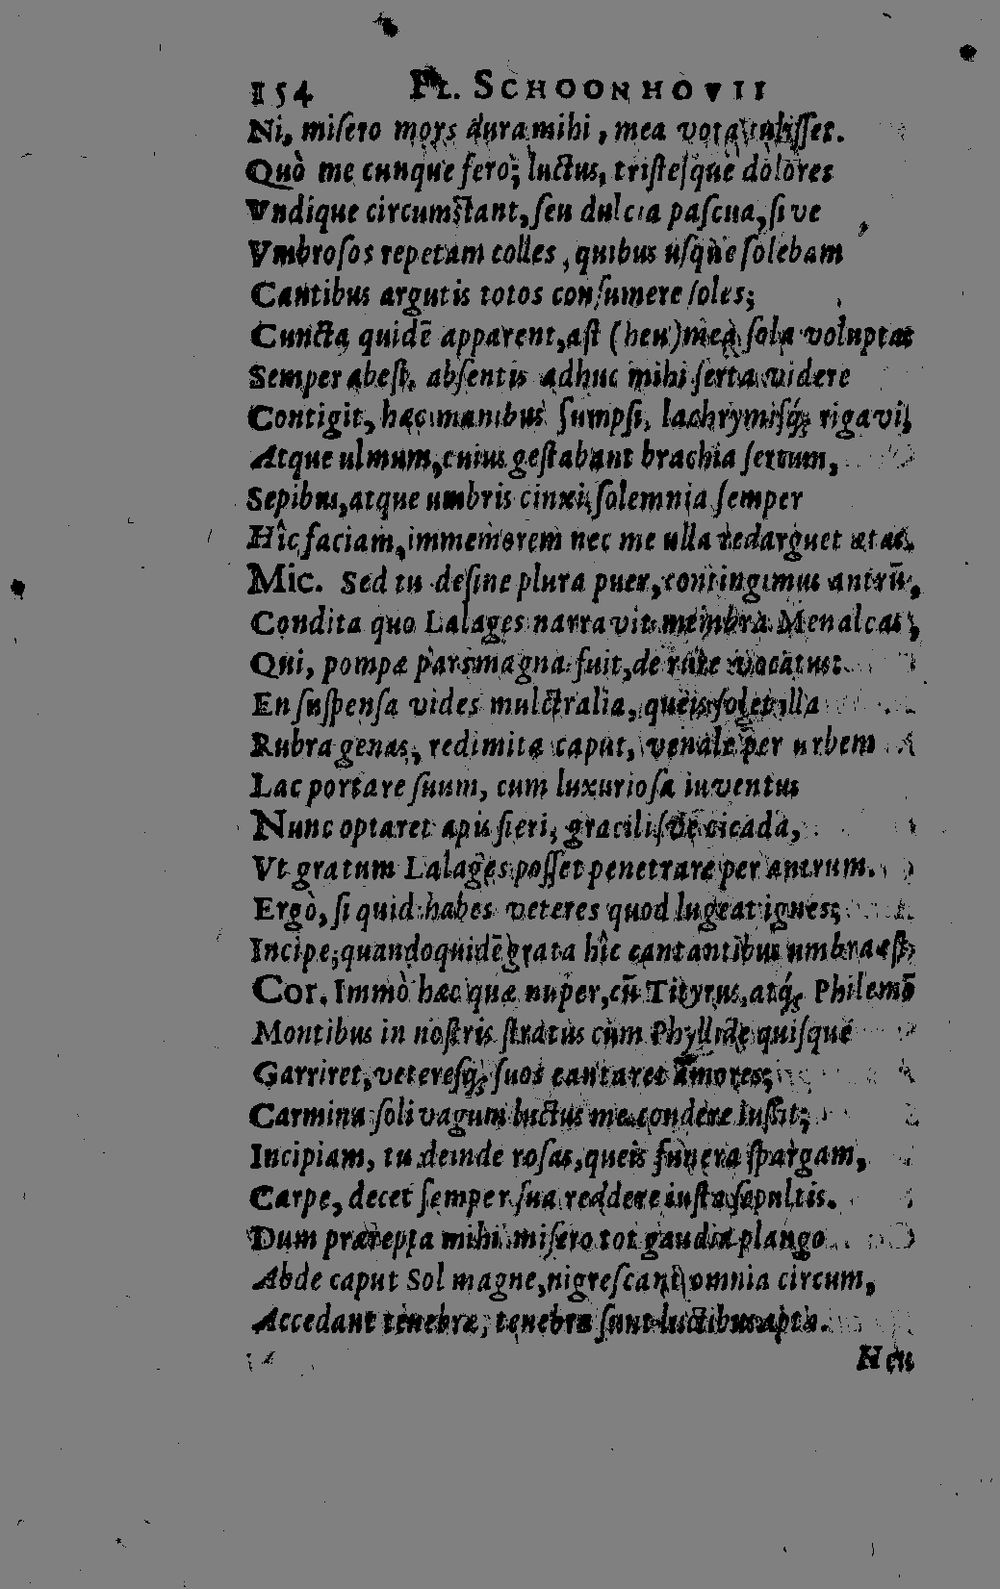 154 FL. SCHOONHOVII
Ni, misero mors dura mihi, mea vota tulisset.
Quò me cunque fero; luctus, tristesque dolores
Vndique circumstant, seu dulcia pascua, sive
Vmbrosos repetam colles, quibus usque solebam
Cantibus argutis totos consumere soles;
Cuncta quidē apparent, ast (heu) mea sola voluptas
Semper abest. absentis adhuc mihi serta videre
Contigit, hæc manibus sumpsi, lachrymisq́; rigavi,
Atque ulmum, cuius gestabant brachia sertum,
Sepibus, atque umbris cinxi, solemnia semper
Hîc faciam, immemorem nec me ulla redarguet ætas.
Mic. Sed tu desine plura puer, contingimus antrū,
Condita quo Lalages narravit membra Menalcas,
Qui, pompæ pars magna fuit, de rure vocatus:
En suspensa vides mulctralia, queis solet illa
Rubra genas, redimita caput, venale per urbem
Lac portare suum, cum luxuriosa iuventus
Nunc optaret apis fieri, gracilisve cicada,
Vt gratum Lalages posset penetrare per antrum.
Ergò, si quid habes veteres quod lugeat ignes;
Incipe; quandoquidē grata hîc cantantibus umbra est.
Cor. Immò hæc quæ nuper, cū Tityrus, atq́; Philemō
Montibus in nostris stratus cum Phyllide quisque
Garriret, veteresq́; suos cantaret amores;
Carmina soli vagum luctus me condere iussit;
Incipiam, tu deinde rosas, queis funera spargam,
Carpe, decet semper sua reddere iusta sepultis.
Dum præreptа mihi misero tot gaudia plango
Abde caput Sol magne, nigrescant omnia circum,
Accedant tenebræ, tenebræ sunt luctibus aptæ.
Heu